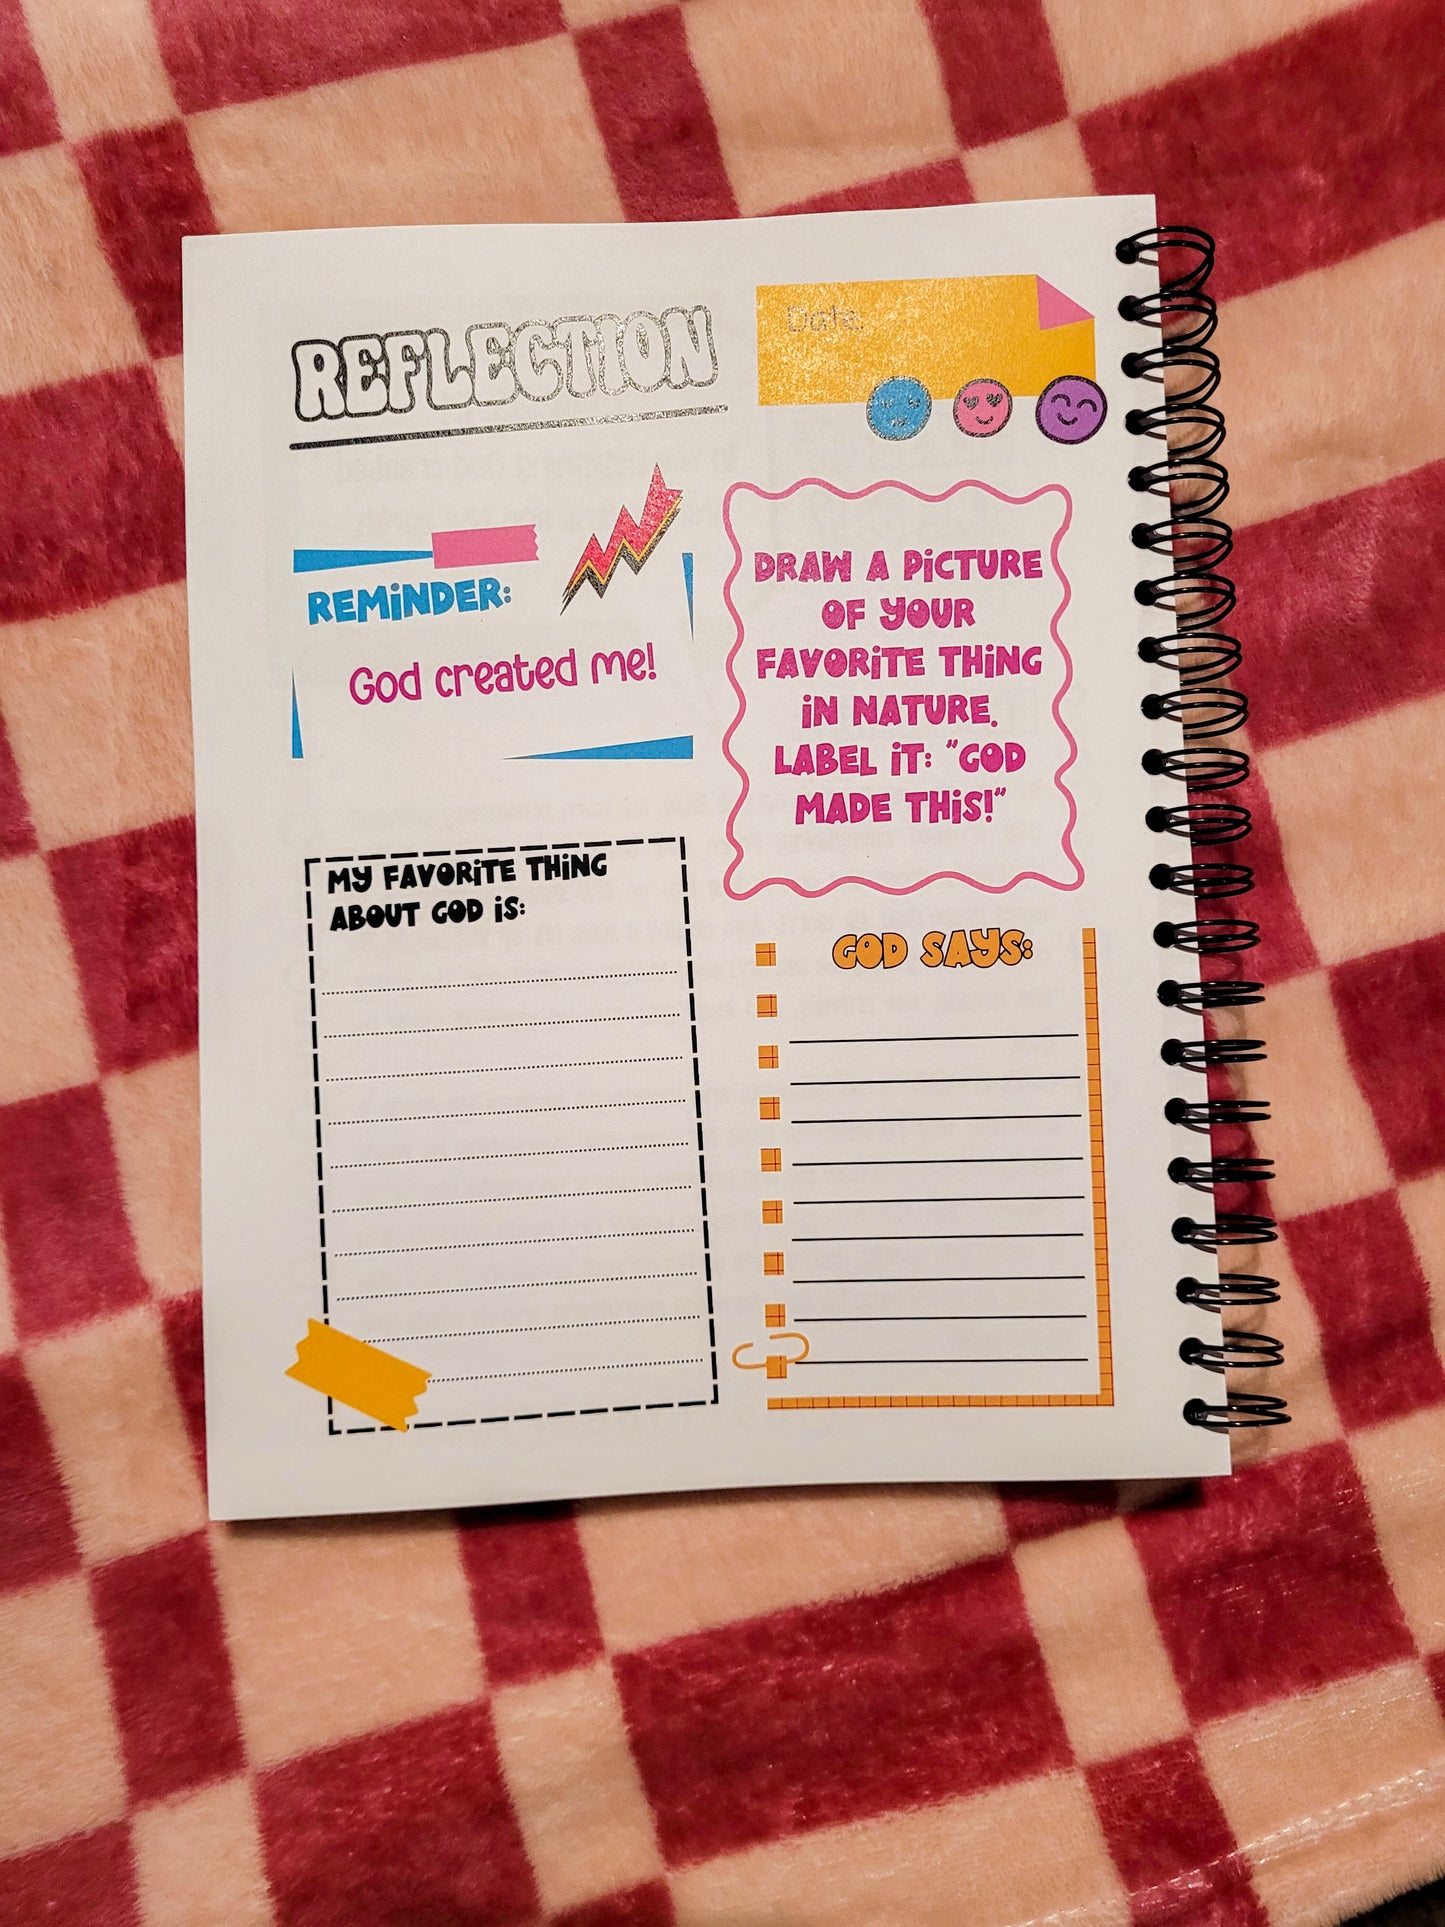 REFLECTION
Date:
REMiNDER:
God created me!
DRAW A PiCTURE
OF YOUR
FAVORiTE THiNG
iN NATURE.
LABEL iT: "GOD
MADE THiS!"
MY FAVORiTE THiNG
ABOUT GOD iS:
GOD SAYS: